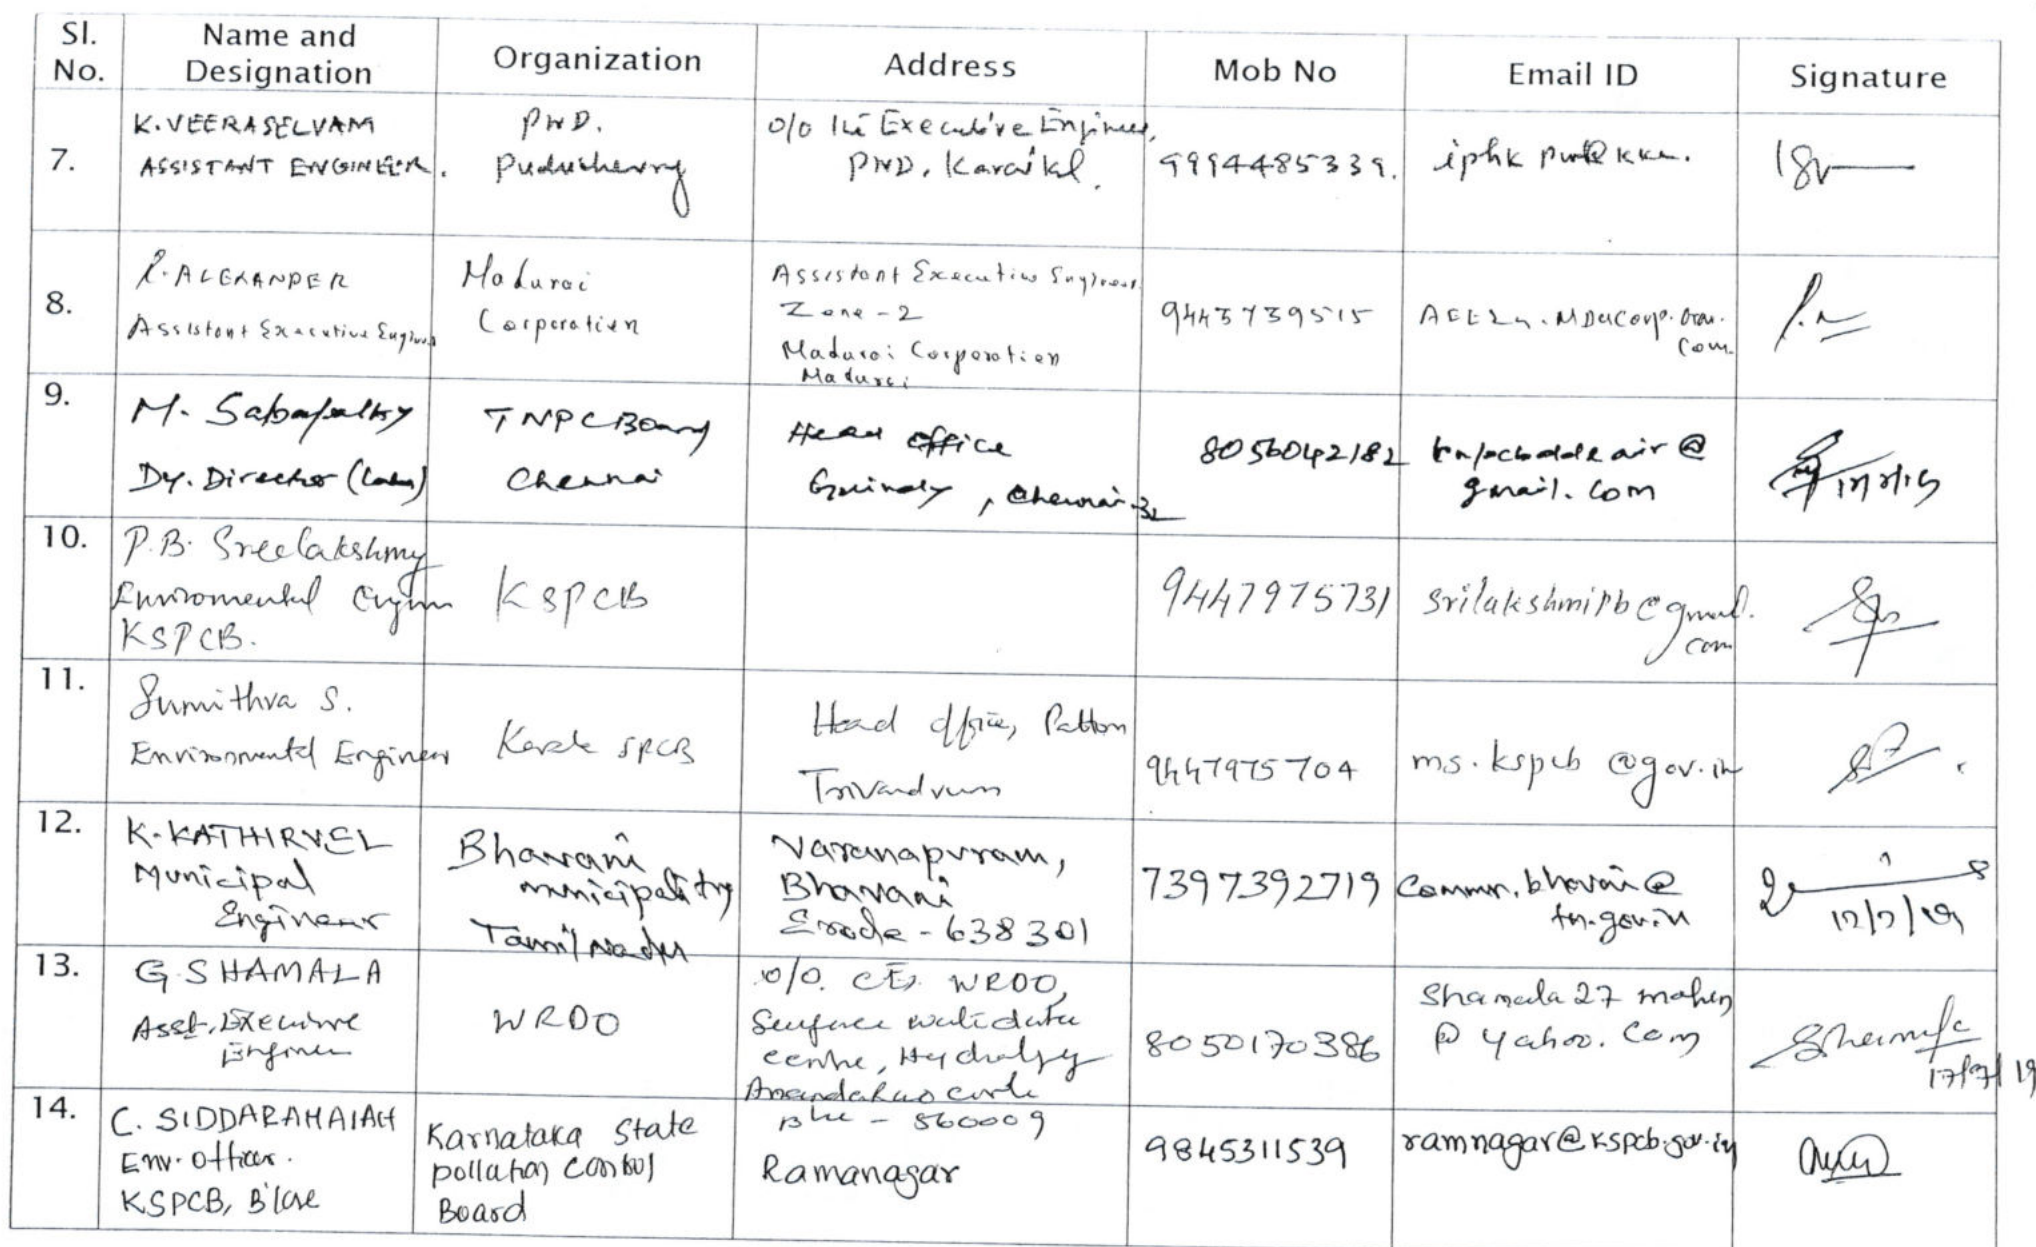 Sl. No.
Name and Designation
Organization
Address
Mob No
Email ID
Signature
7.
K. VEERASELVAM
ASSISTANT ENGINEER.
PWD.
Puducherry
O/o the Executive Engineer,
PWD, Karaikl.
9994485339.
8.
R. ALEXANDER
Assistant Executive Engineer
Madurai
Corporation
Assistant Executive Engineer
Zone - 2
Madurai Corporation
Madurai
9.
M. Sabapathy
Dy. Director (Labs)
TNPCBoard
Chennai
Head office
Guindy, Chennai-32
8056042182
gmail.com
10.
P.B. Sreelakshmy
Environmental Engineer
KSPCB.
KSPCB
9447975731
srilakshmipb@gmail.
com
11.
Sumithra S.
Environmental Engineer
Kerala SPCB
Head office, Pattom
Trivandrum
9447975704
ms.kspcb@gov.in
12.
K. KATHIRVEL
Municipal
Engineer
Bhavani
municipality
Tamil Nadu
Varanapuram,
Bhavani
Erode - 638301
7397392719
tn.gov.in
13.
G SHAMALA
Asst. Executive
Engineer
WRDO
O/O. CE, WRDO,
centre, Hydrology
- 560009
8050170386
@ yahoo.com
17/7/19
14.
C. SIDDARAMAIAH
Env. Officer.
KSPCB, B'lore
Karnataka State
pollution control
Board
Ramanagar
9845311539
ramnagar@kspcb.gov.in